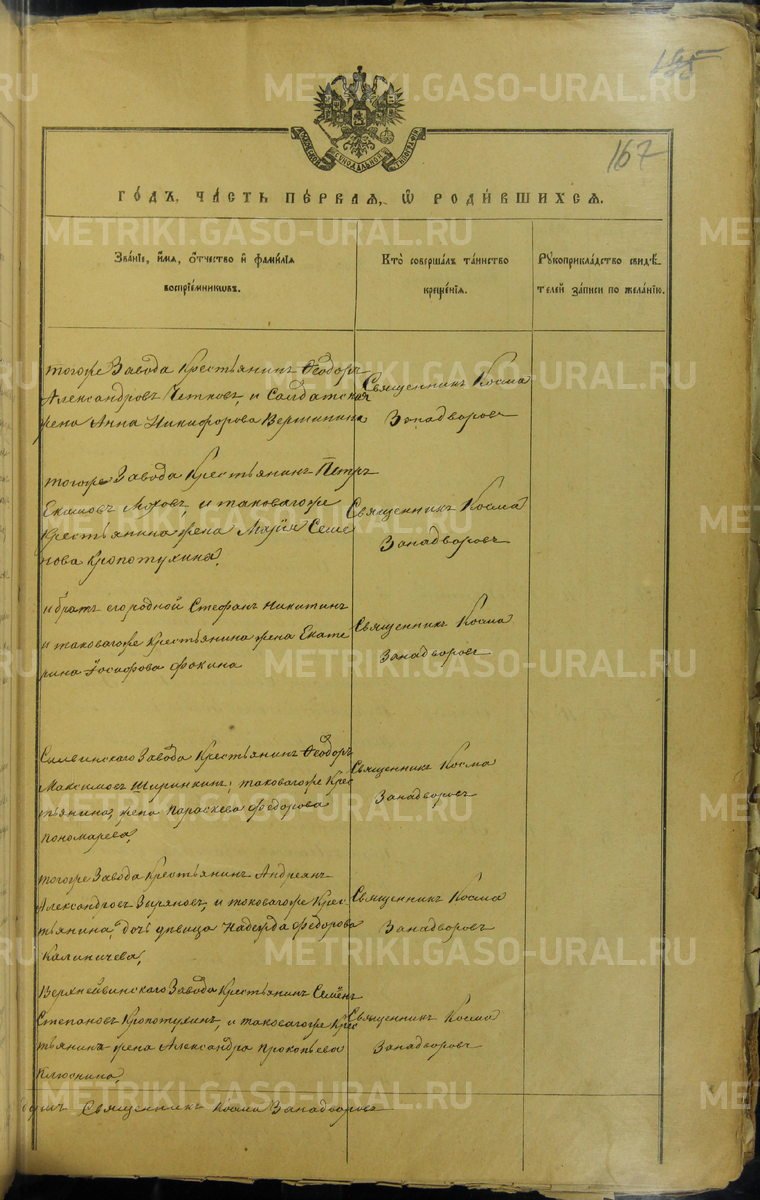 METRIKI.GASO-URAL.RU
167
МОСКОВСКОЙ СѴНОДАЛЬНОЙ ТИПОГРАФІИ
ГО́ДЪ, ЧА́СТЬ ПЕ́РВАЯ, Ѽ РОДИ́ВШИХСЯ.
Зва́нїе, и҆́мя, ѻ҆́тчество и҆ фами́лїя
воспрїе́мникѡвъ.
Кто̀ соверша́лъ та́инство
креще́нїя.
Рꙋкоприкла́дство свидѣ́-
телей за́писи по жела́нїю.
тогоже Завода Крестьянинъ Ѳеодоръ
Александровъ Четковъ, и Солдатская
жена Анна Никифорова Вершинина
Священникъ Косма
Западворовъ
тогоже Завода Крестьянинъ Петръ
Екимовъ Моховъ, и таковагоже
Крестьянина жена Марія Семе
нова Кропотухина,
Священникъ Косма
Западворовъ
и братъ его родной Стефанъ Никитинъ
и таковагоже Крестьянина жена Екате
рина Іосифова Фокина
Священникъ Косма
Западворовъ
Сылвинскаго Завода Крестьянинъ Ѳеодоръ
Максимовъ Ширинкинъ, таковагоже Крес
тьянина жена Параскева Федорова
Пономарева,
Священникъ Косма
Западворовъ
тогоже Завода Крестьянинъ Андреянъ
Александровъ Зыряновъ, и таковагоже Крес
тьянина дочь девица Надежда Федорова
Калиничева,
Священникъ Косма
Западворовъ
Верхнейвинскаго Завода Крестьянинъ Семенъ
Степановъ Кропотухинъ, и таковагоже Крес
тьянина жена Александра Прокопьева
Клюснина,
Священникъ Косма
Западворовъ
Священникъ Косма Западворовъ